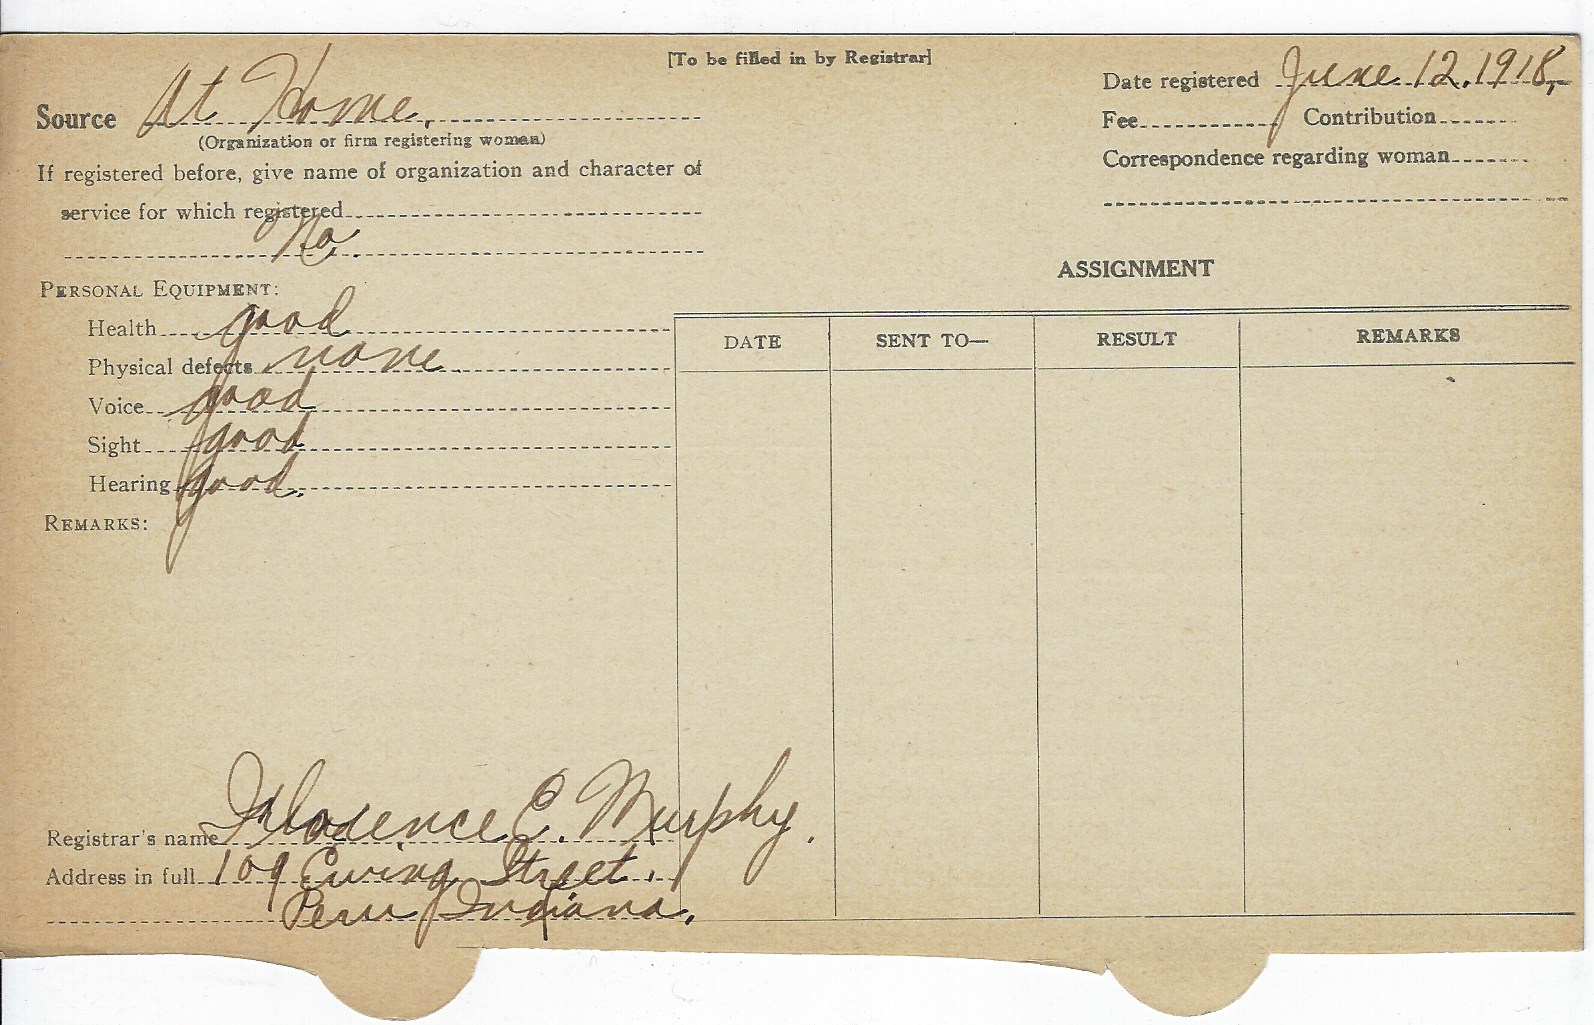 [To be filled in by Registrar]
Source At Home.
(Organization or firm registering woman)
If registered before, give name of organization and character of
service for which registered
No.
PERSONAL EQUIPMENT:
Health good
Physical defects none
Voice good
Sight good
Hearing good.
REMARKS:
Registrar's name Florence E. Murphy.
Address in full 109 Ewing Street.
Peru Indiana.
Date registered June 12, 1918,
Fee Contribution
Correspondence regarding woman
ASSIGNMENT
DATE SENT TO— RESULT REMARKS